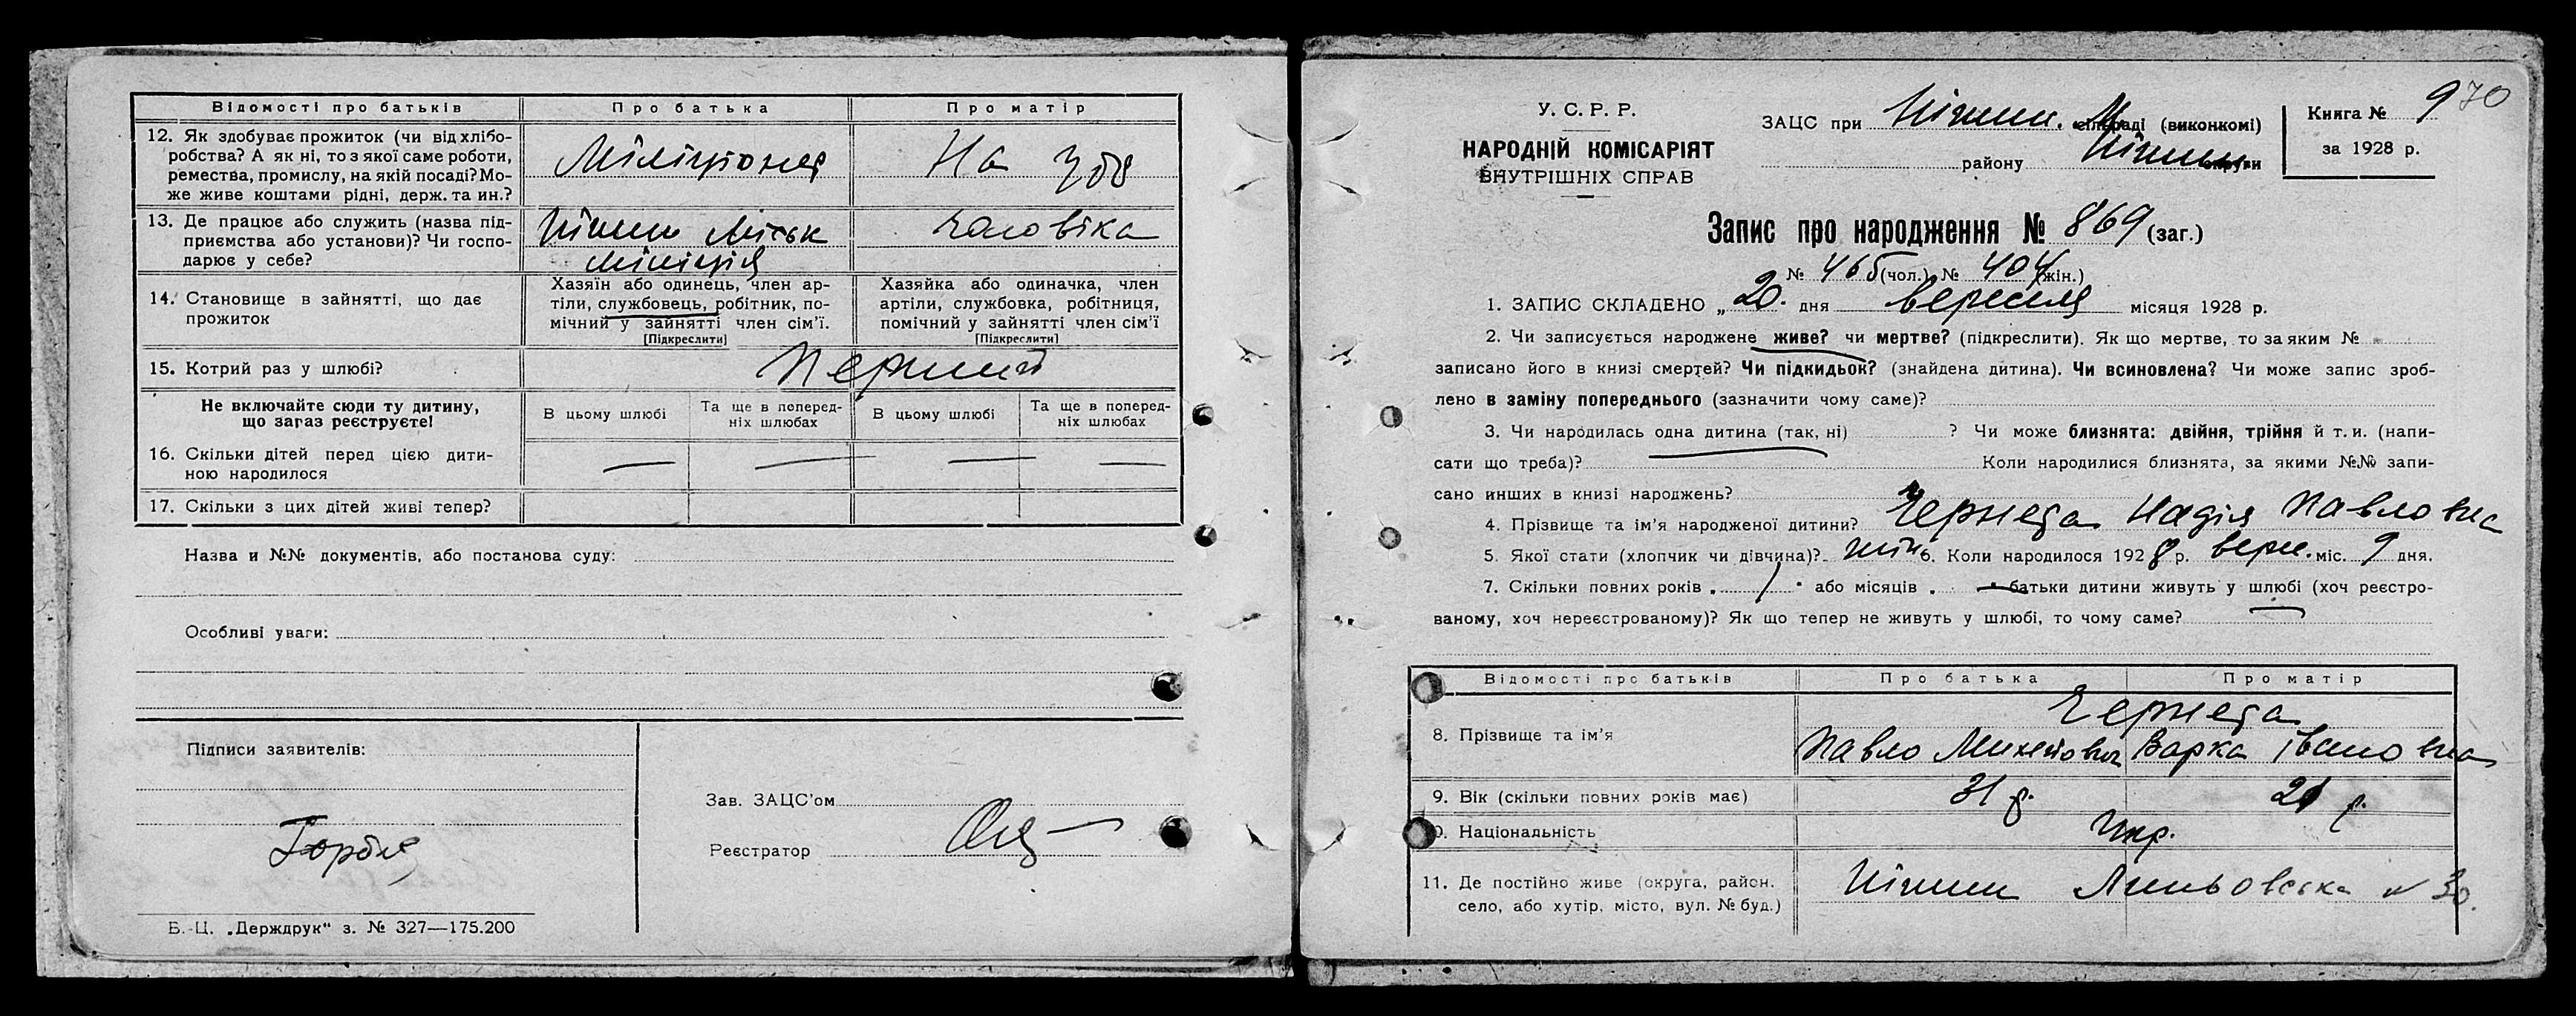 Відомості про батьків Про батька Про матір
12. Як здобуває прожиток (чи від хлібо-
робства? А як ні, то з якої саме роботи,
ремества, промислу, на якій посаді? Мо-
же живе коштами рідні, держ. та ин.?
Міліціонер На утр
13. Де працює або служить (назва під-
приємства або установи)? Чи госпо-
дарює у себе?
Ніжин міськ чоловіка
міліція
14. Становище в зайнятті, що дає
прожиток
Хазяїн або одинець, член ар-
тіли, службовець, робітник, по-
мічний у зайнятті член сім'ї.
[Підкреслити]
Хазяйка або одиначка, член
артіли, службовка, робітниця,
помічний у зайнятті член сім'ї
[Підкреслити]
15. Котрий раз у шлюбі? Перший
Не включайте сюди ту дитину,
що зараз реєструєте!
В цьому шлюбі
Та ще в поперед-
ніх шлюбах
В цьому шлюбі
Та ще в поперед-
ніх шлюбах
16. Скільки дітей перед цією дити-
ною народилося — — — —
17. Скільки з цих дітей живі тепер?
Назва и №№ документів, або постанова суду:
Особливі уваги:
Підписи заявителів:
Зав. ЗАЦС'ом
Реєстратор
Б.-Ц. „Держдрук" з. № 327—175.200
У. С. Р. Р.
НАРОДНІЙ КОМІСАРІЯТ
ВНУТРІШНІХ СПРАВ
ЗАЦС при Ніжин. М. сільраді (виконкомі)
району Ніжин округи
Книга № 9 70
за 1928 р.
Запис про народження № 869 (заг.)
№ 465 (чол.) № 404 (жін.)
1. ЗАПИС СКЛАДЕНО „ 20. дня вересня місяця 1928 р.
2. Чи записується народжене живе? чи мертве? (підкреслити). Як що мертве, то за яким №
записано його в книзі смертей? Чи підкидьок? (знайдена дитина). Чи всиновлена? Чи може запис зроб-
лено в заміну попереднього (зазначити чому саме)?
3. Чи народилась одна дитина (так, ні) ? Чи може близнята: двійня, трійня й т. и. (напи-
сати що треба)? Коли народилися близнята, за якими №№ запи-
сано инших в книзі народжень?
4. Прізвище та ім'я народженої дитини? Чернега Надія Павловна
5. Якої стати (хлопчик чи дівчина)? жін 6. Коли народилося 1928 р. верес. міс. 9 дня.
7. Скільки повних років 1 або місяців — батьки дитини живуть у шлюбі (хоч реєстро-
ваному, хоч нереєстрованому)? Як що тепер не живуть у шлюбі, то чому саме? —
Відомості про батьків Про батька Про матір
8. Прізвище та ім'я
Чернега
Павло Михейович Варка Івановна
9. Вік (скільки повних років має) 31 р. 21 р.
10. Національність Укр.
11. Де постійно живе (округа, район.
село, або хутір, місто, вул. № буд.)
Ніжин № 30.